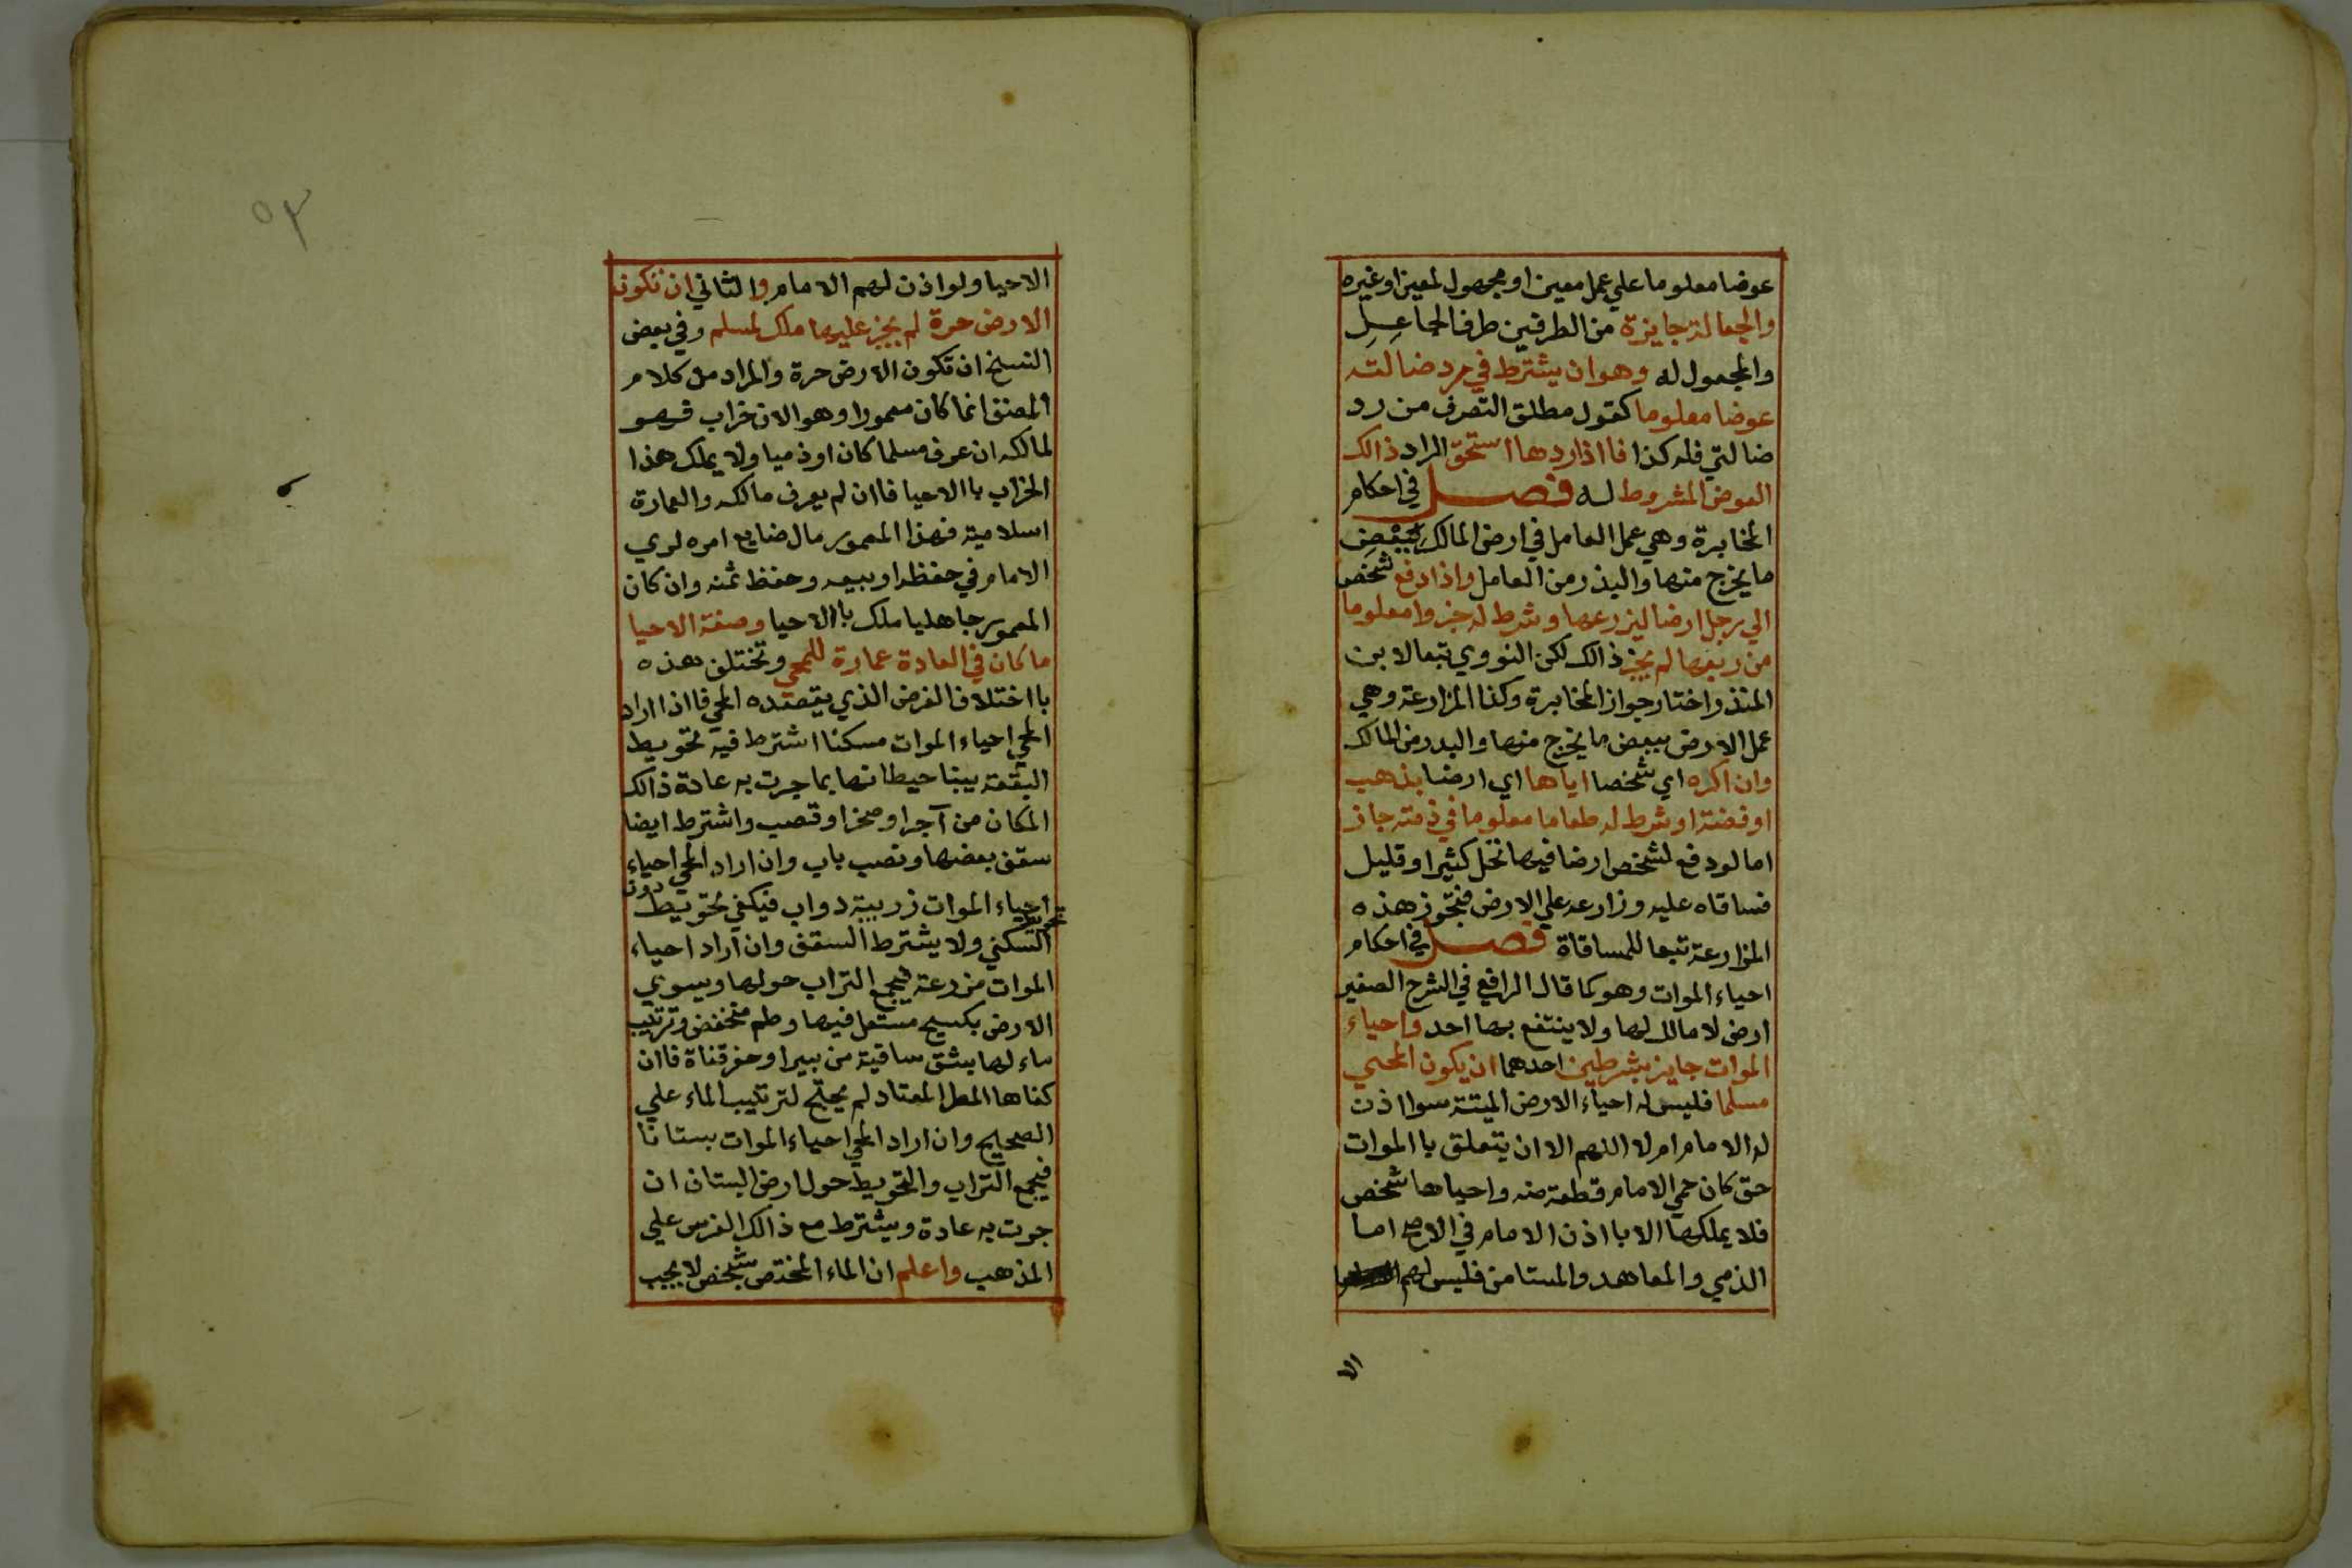 عوضا معلوما علي عمل معين او مجهول لمعين او غيره
والجعالة جايزة من الطرفين طرف الجاعل
والمجعول له وهو ان يشترط في رد ضالته
عوضا معلوما كقول مطلق التصرف من رد
ضالتي فله كذا فااذا ردها استحق الراد ذالك
العوض المشروط له فصل في احكام
المخابرة وهي عمل العامل في ارض المالك ببعض
ما يخرج منها والبذر من العامل واذا دفع شخص
الي رجل ارضا ليزرعها وشرط له جزوا معلوما
من ريعها لم يجز ذالك لكن النووي تبعا لابن
المنذر اختار جواز المخابرة وكذا المزارعة وهي
عمل الارض ببعض ما يخرج منها والبدر من المالك
وان اكره اي شخصا اياها اي ارضا بذهب
او فضة او شرط له طعاما معلوما في ذمته جاز
اما لو دفع لشخص ارضا فيها نخل كثير او قليل
فساقاه عليه وزارعه علي الارض فتجوز هذه
المزارعة تبعا للمساقاة فصل في احكام
احياء الموات وهو كما قال الرافعي في الشرح الصغير
ارض لا مالك لها ولا ينتفع بها احد واحياء
الموات جايز بشرطين احدهما ان يكون المحيي
مسلما فليس له احياء الارض الميتة سوا اذن
له الامام ام لا اللهم الا ان يتعلق با الموات
حق كان حمي الامام قطعة منه واحياها شخص
فلا يملكها الا باا ذن الامام في الاصح اما
الذمي والمعاهد والمستامن فليس لهم
الا
٥٣
الاحيا ولو اذن لهم الامام والثاني ان تكون
الارض حرة لم يجز عليها ملك لمسلم وفي بعض
النسخ ان تكون الارض حرة والمراد من كلام
المصنف انما كان معمورا وهو الان خراب فهو
لمالكه ان عرف مسلما كان او ذميا ولا يملك هذا
الخراب با الاحيا فاان لم يعرف مالكه والعمارة
اسلامية فهذا المعمور مال ضايع امره لري
الامام في حفظه او بيعه وحفظ ثمنه وان كان
المعمور جاهليا ملك باالاحيا وصفة الاحيا
ما كان في العادة عمارة للمحي وتختلف هذه
با اختلاف الغرض الذي يقصده المحي فااذا اراد
المحي احياء الموات مسكنا اشترط فيه تحويط
البقعة ببنا حيطانها بما جرت به عادة ذالك
المكان من آجر او صخر او قصب واشترط ايضا
سقف بعضها ونصب باب وان اراد المحي احياء
احياء الموات زريبة دواب فيكفي تحويط دون
تحويط السكني ولا يشترط السقف وان اراد احياء
الموات مزرعة فيجمع التراب حولها ويسوي
الارض بكسيح مستعل فيها وطم منخفض وترتيب
ماء لها بشق ساقية من بير او حفر قناة فاان
كفاها المطر المعتاد لم يحتج لترتيب الماء علي
الصحيح وان اراد المحي احياء الموات بستانا
فيجمع التراب والتحويط حول ارض البستان ان
جرت به عادة ويشترط مع ذالك الغرس علي
المذهب واعلم ان الماء المختص بشخص لا يجب